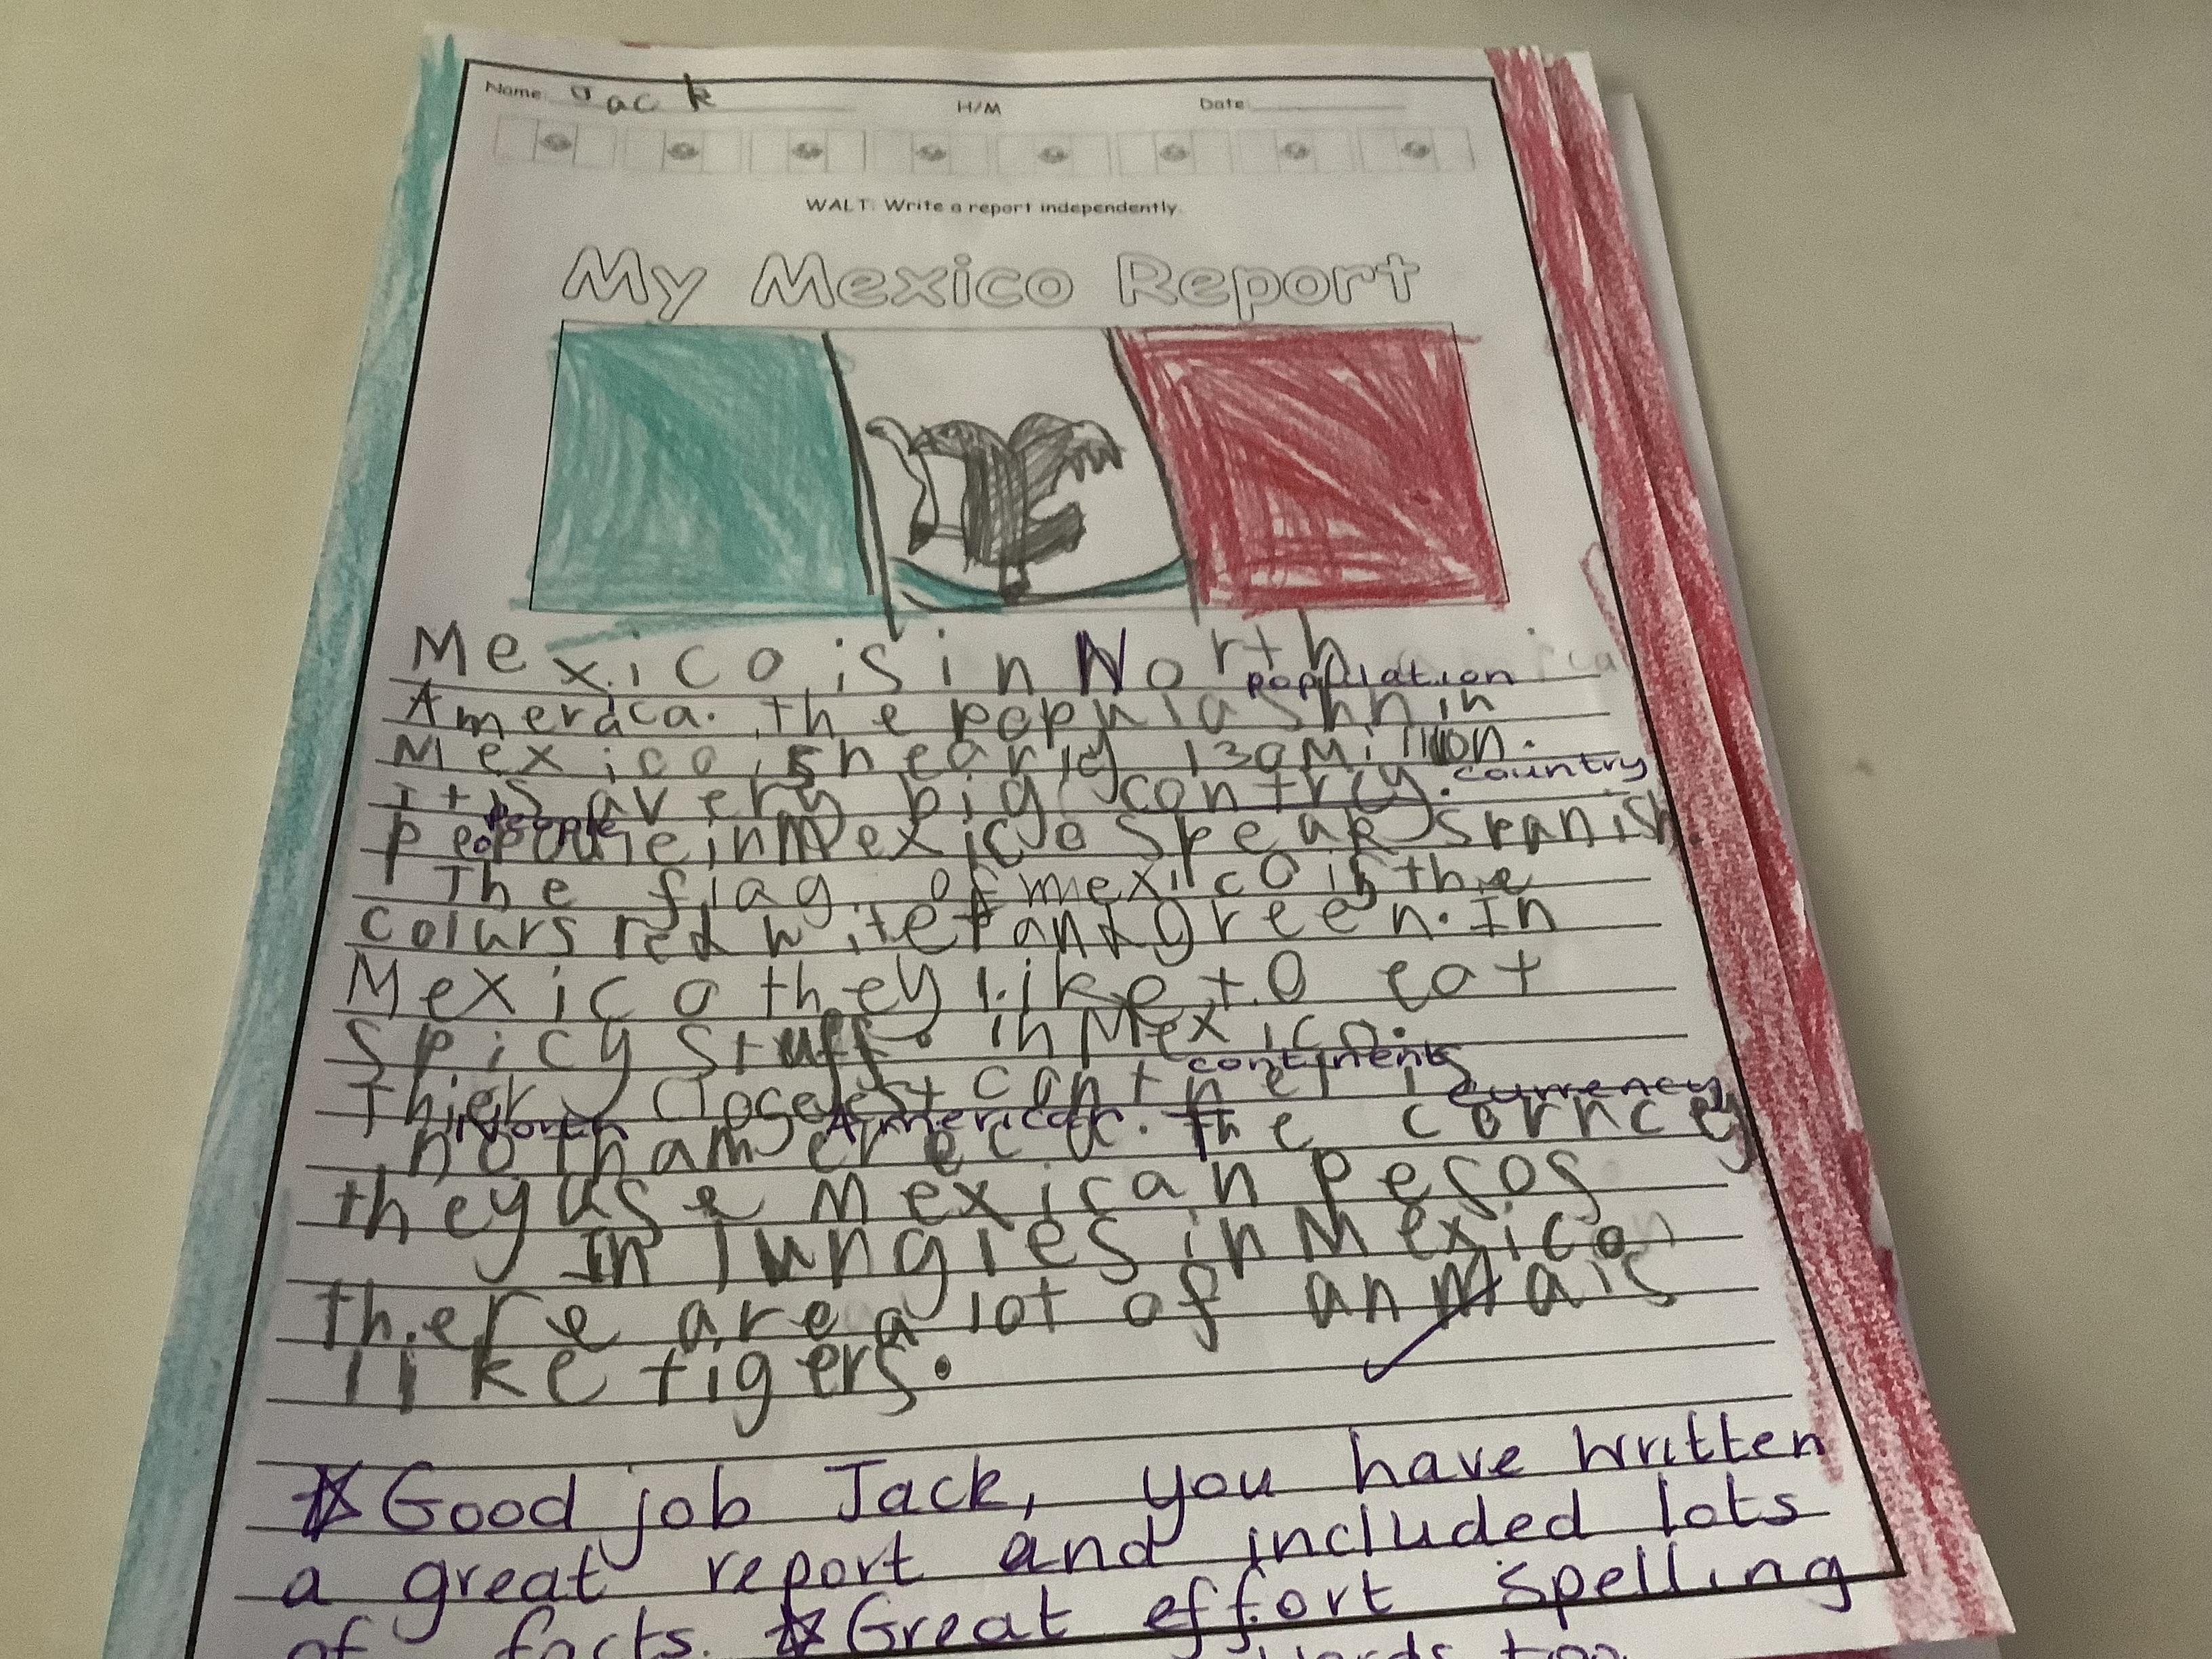 Name: Jack H/M Date
WALT: Write a report independently.
My Mexico Report
Mexico is in North
population
Ameraca. The populashn in
Mexico is nearly 130 Million.
country
It is a very big contrey.
people
people in Mexico speak spanish.
The flag of mexico is the
colurs red wite and green. In
Mexico they like to eat
spicy stuff. in Mexico.
continent
Thier closest contnet is
North American currency
north amereca. The corncey
they use Mexican pesos
In jungles in Mexico
there are a lot of anmals
like tigers.
☆ Good job Jack, you have written
a great report and included lots
of facts. ☆ Great effort spelling
words too.